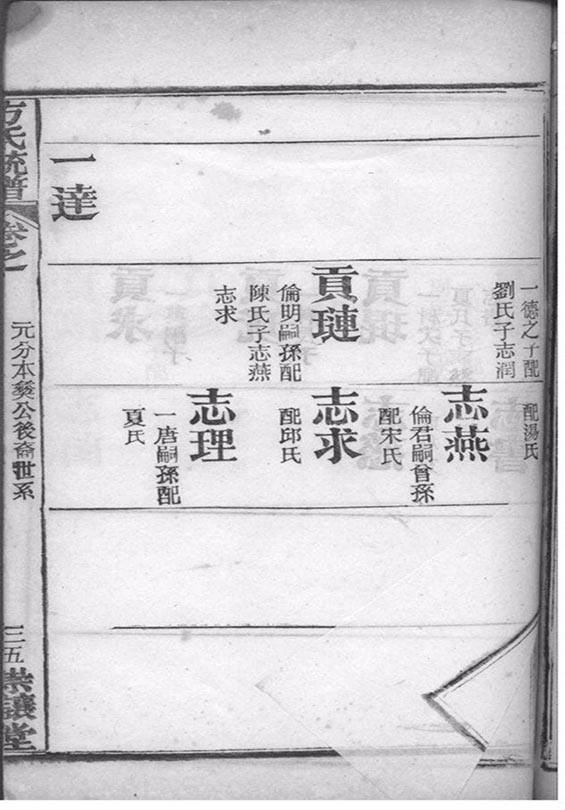 一德之子配
劉氏子志潤
貢璉
倫明嗣孫配
陳氏子志燕
志求
一達
配湯氏
志燕
倫君嗣曾孫
配宋氏
志求
配邱氏
志理
一唐嗣孫配
夏氏
方氏統譜
卷之
元分本發公後裔世系
三五
崇讓堂